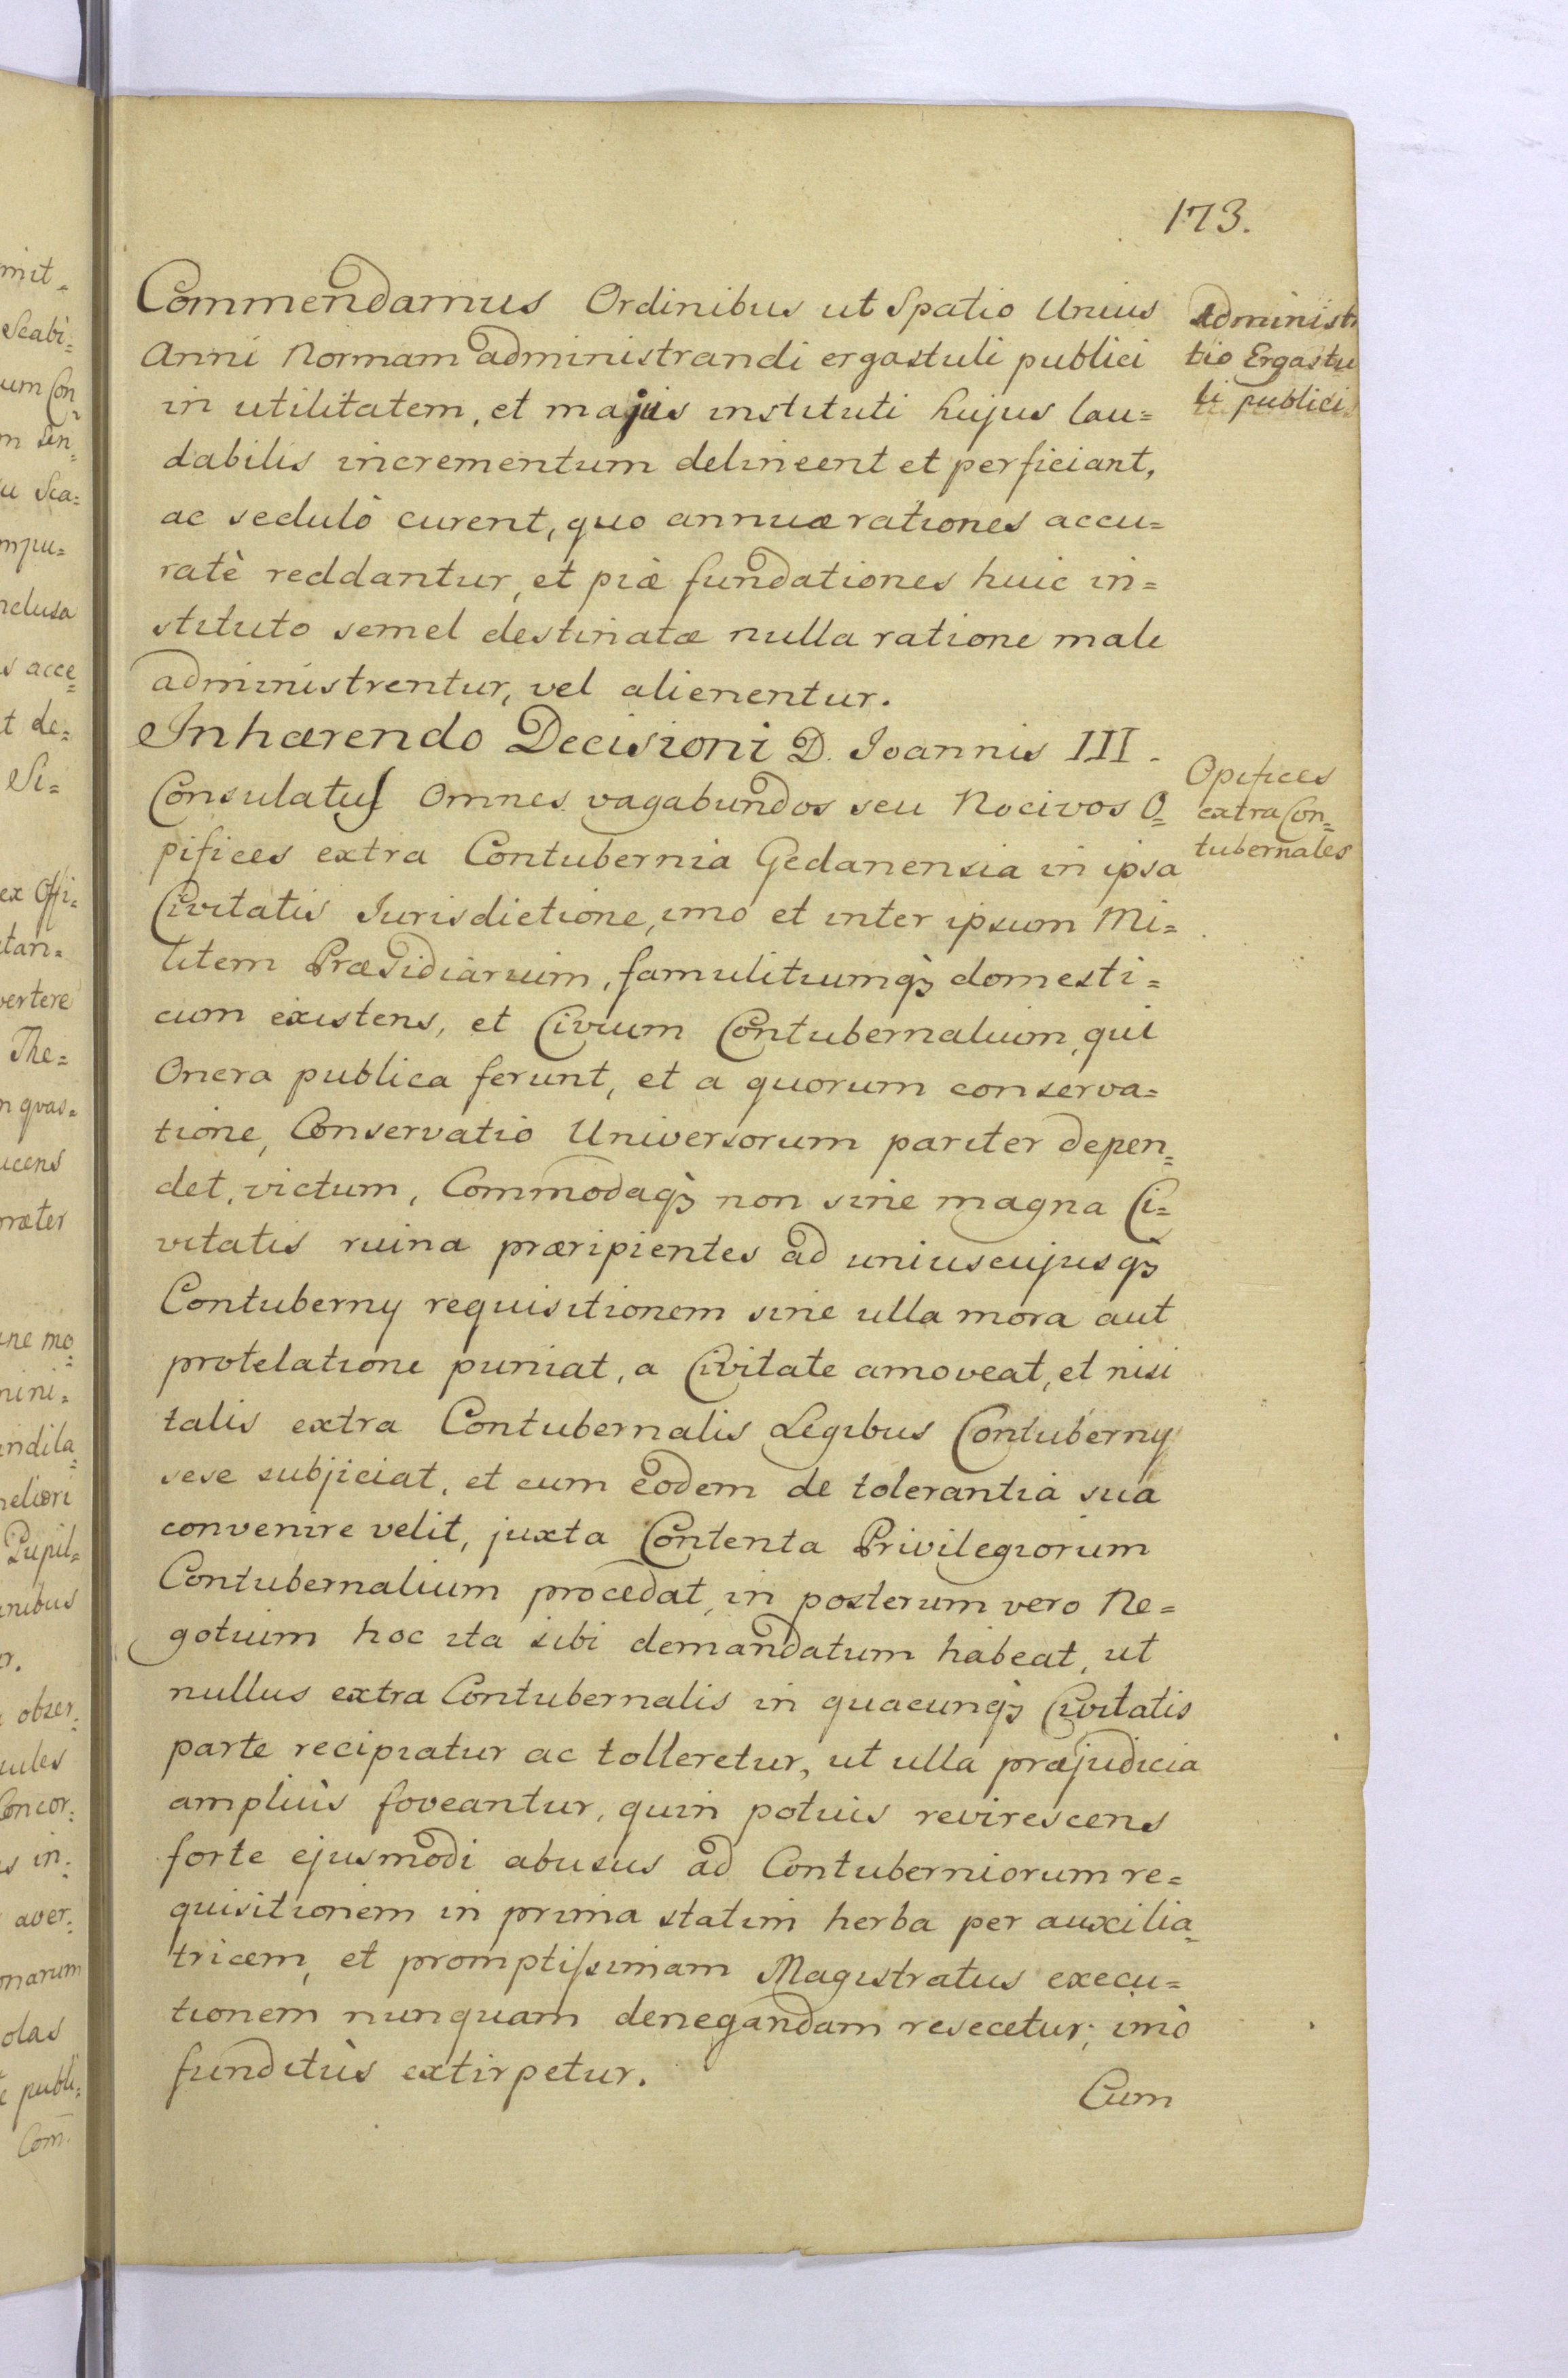 173.
Commendamus Ordinibus ut Spatio Unius
Anni Normam administrandi ergastuli publici
in utilitatem, et majus instituti hujus lau=
dabilis incrementum delineent et perficiant,
ac sedulò curent, quo annuæ rationes accu=
ratè reddantur, et piæ fundationes huic in=
stituto semel destinatæ nulla ratione male
administrentur, vel alienentur.
Administr
tio Ergastu
li publici
Inhærendo Decisioni D. Joannis III.
Consulatus Omnes vagabundos seu Nocivos O=
pifices extra Contubernia Gedanensia in ipsa
Civitatis Jurisdictione, imo et inter ipsum Mi=
litem Præsidiarium, famulitiumq3 domesti=
cum existens, et Civium Contubernalium, qui
Onera publica ferunt, et a quorum conserva=
tione, Conservatio Universorum pariter depen=
det, victum, Commodaq3 non sine magna Ci=
vitatis ruina præripientes ad uniuscujusq3
Contuberny requisitionem sine ulla mora aut
protelatione puniat, a Civitate amoveat, et nisi
talis extra Contubernalis Legibus Contuberny
sese subjiciat, et cum eodem de tolerantia sua
convenire velit, juxta Contenta Privilegiorum
Contubernalium procedat, in posterum vero Ne=
gotium hoc ita sibi demandatum habeat, ut
nullus extra Contubernalis in quacunq3 Civitatis
parte recipiatur ac tolleretur, ut ulla præjudicia
ampliùs foveantur, quin potius revirescens
forte ejusmodi abusus ad Contuberniorum re=
quisitionem in prima statim herba per auxilia=
tricem, et promptissimam Magistratus execu=
tionem nunquam denegandam resecetur, imò
funditùs extirpetur.
Opifices
extra Con=
tubernales
Cum
mit=
Scabi=
um Con=
u Sca=
mpu=
nclusa
s acce=
t de=
Si=
ex Offi=
tan=
vertere
The=
n quas=
ucens
ræter
ne mo=
mini=
endila=
meliori
Pupil=
nibus
r.
obser=
uiles
Concor=
s in=
aver=
onarum
olas
e publi=
Com̄.